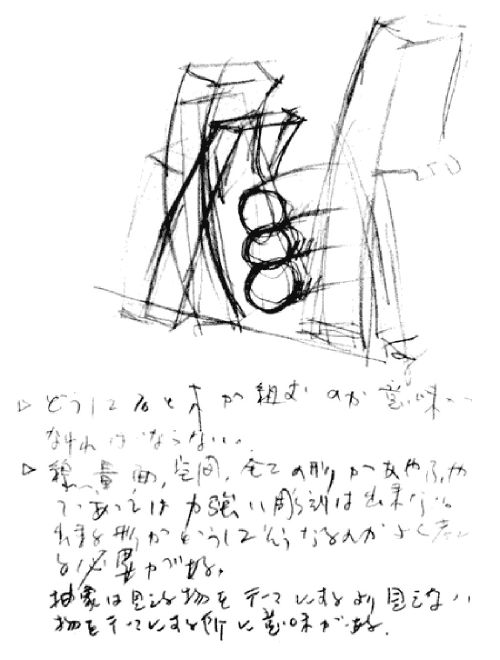 250
▷ どうして石と木が組むのか 意味
なければならない。
▷ 線、量、面、空間、全ての形があやふや
であっては力強い彫刻は出来ない。
出来る形がどうしてそうなるのかよく考え
る必要がある。
抽象は見える物をテーマにするより見えない
物をテーマにする所に意味がある。